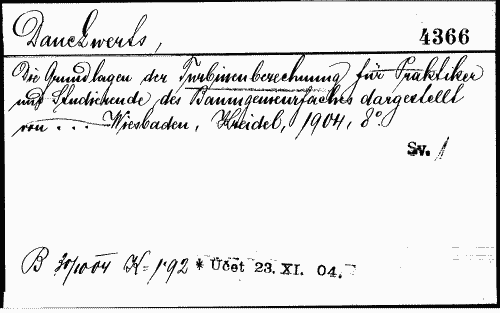 Danckwerts,
4366
Die Grundlagen der Turbinenberechnung für Praktiker
und Studierende des Bauingenieurfaches dargestellt
von ... Wiesbaden, Kreidel, 1904, 8°.
Sv. 1
B 30/10 04 K = 1·92 * Účet 23. XI. 04.